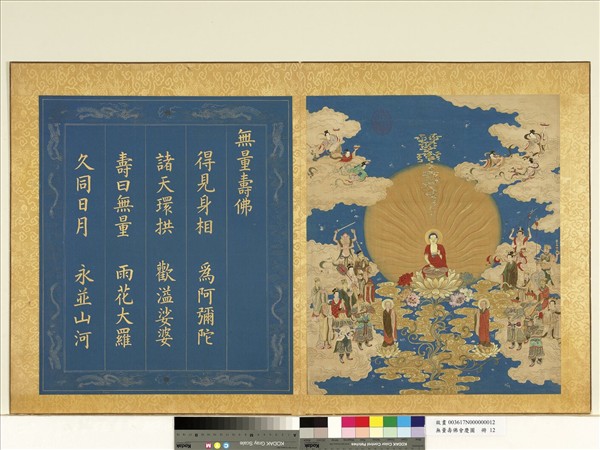 無量壽佛
得見身相　為阿彌陀
諸天環拱　歡溢娑婆
壽曰無量　雨花大羅
久同日月　永並山河
故畫 003617N000000012
無量壽佛會慶圖　冊 12
Kodak Gray Scale
Kodak Color Control Patches